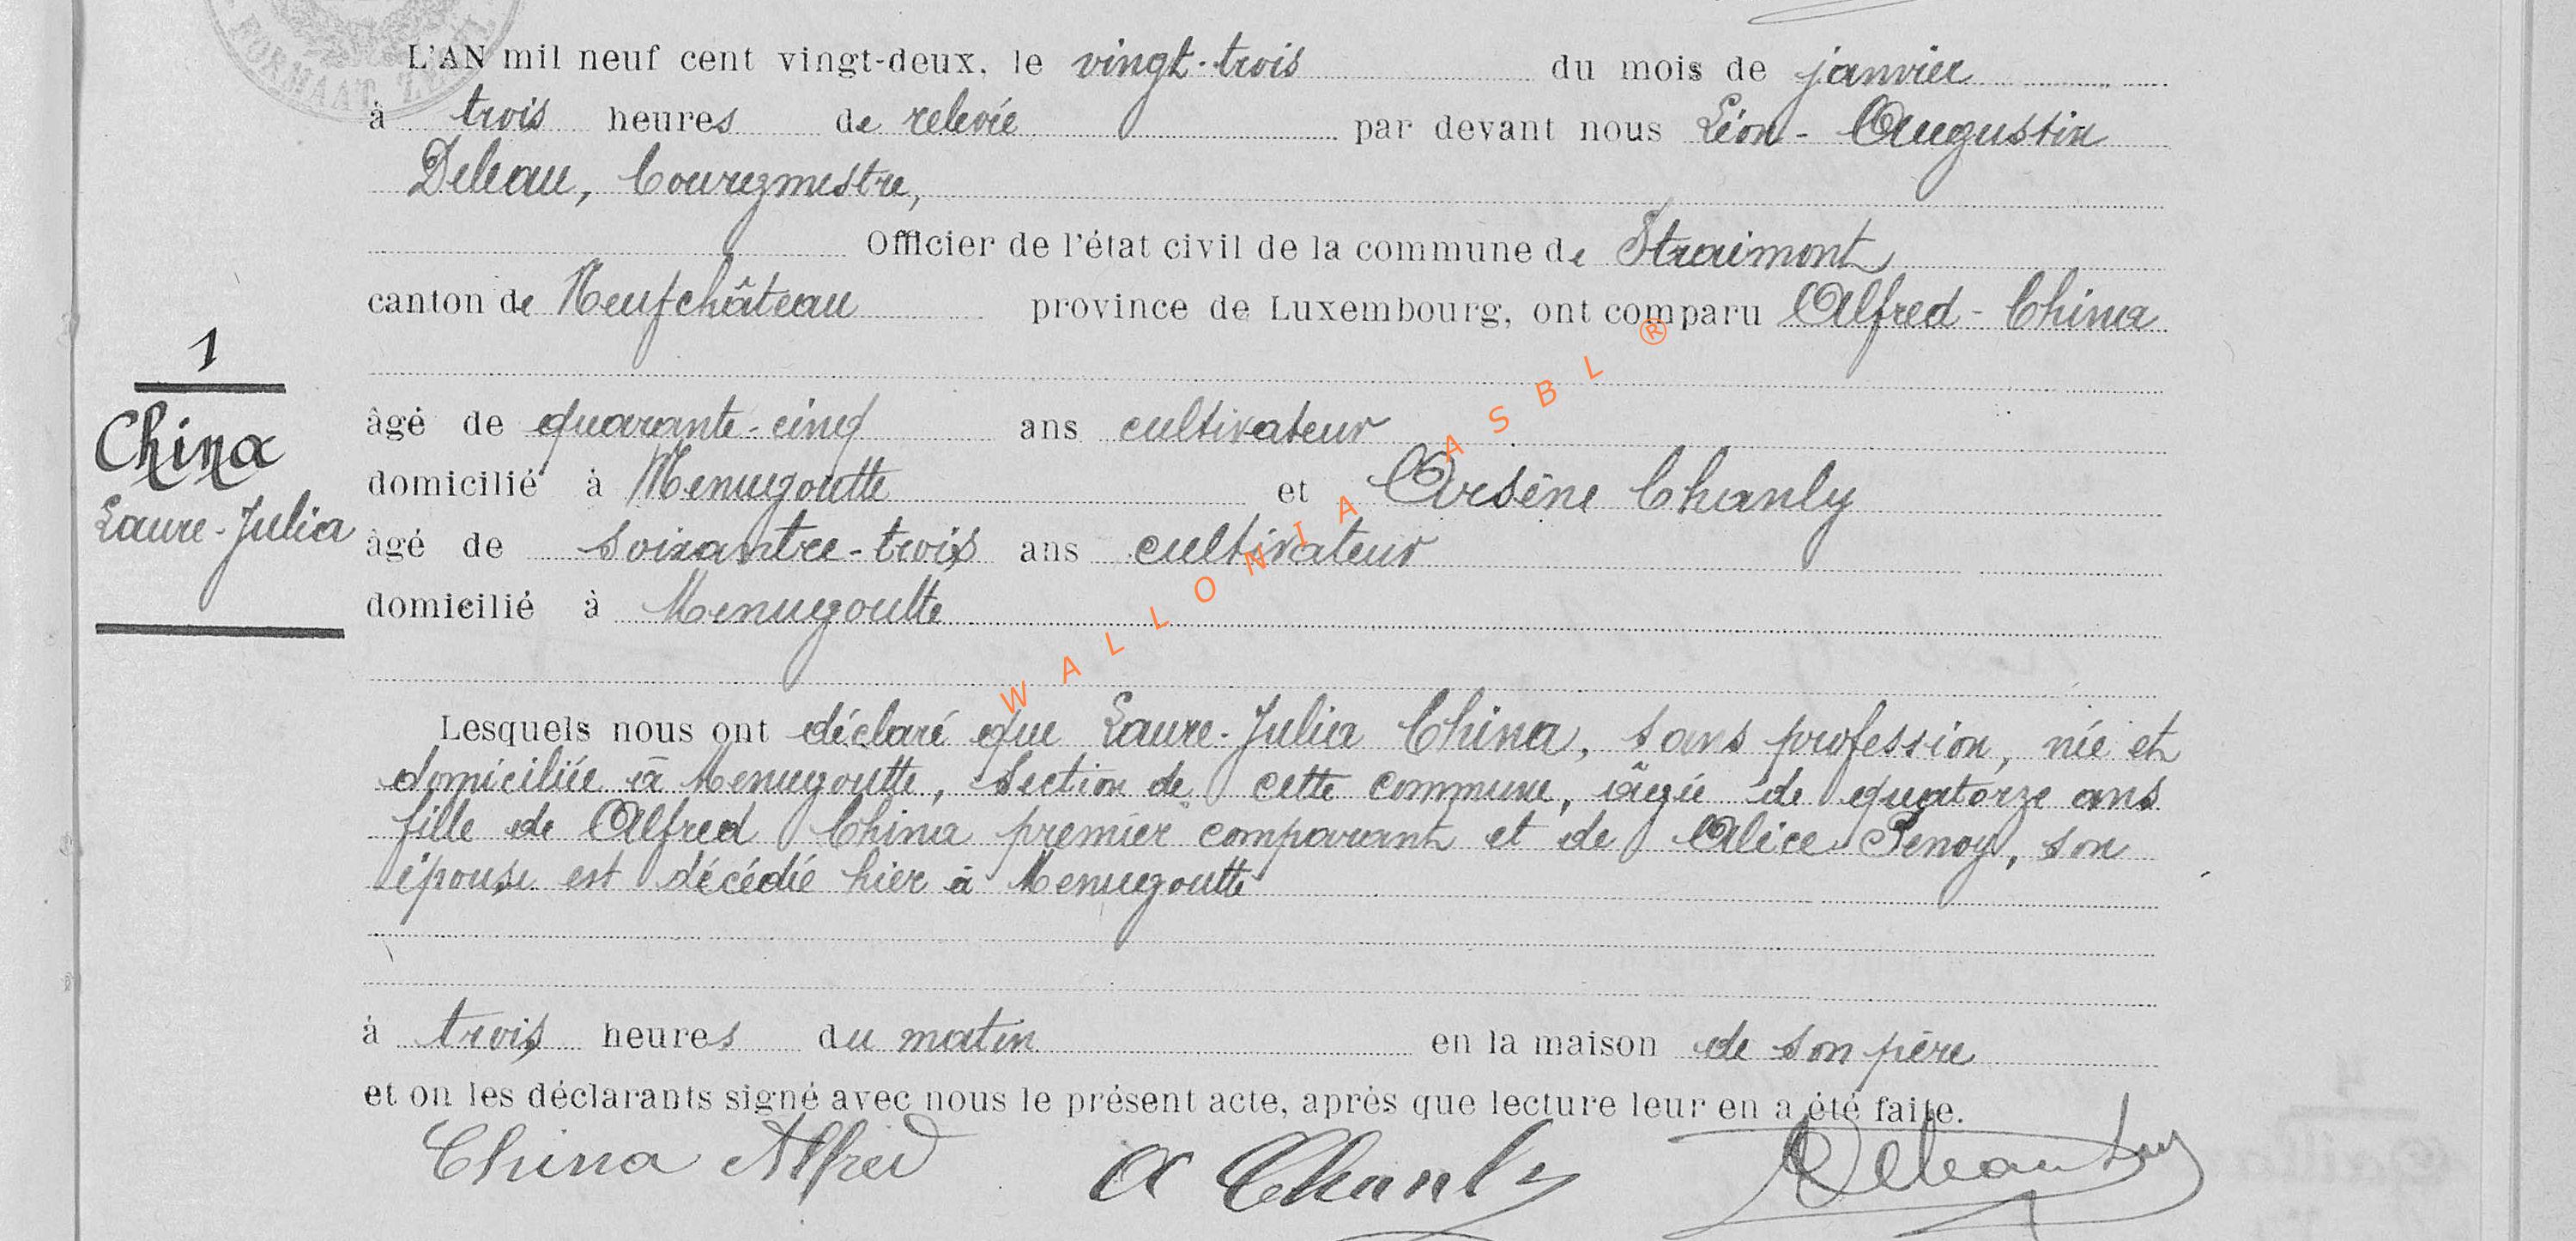 FORMAAT ZEGEL
L'AN mil neuf cent vingt-deux, le vingt-trois du mois de janvier
à trois heures de relevée par devant nous Léon-Augustin
Deleau, bourgmestre,
Officier de l'état civil de la commune de Straimont
canton de Neufchâteau province de Luxembourg, ont comparu Alfred-China
1
China
Laure-Julia
âgé de quarante-cinq ans cultivateur
domicilié à Menugoutte et Arsène Chanly
âgé de soixante-trois ans cultivateur
domicilié à Menugoutte
Lesquels nous ont déclaré que Laure-Julia China, sans profession, née et
domiciliée à Menugoutte, section de cette commune, âgée de quatorze ans
fille de Alfred China premier comparant et de Alice Penoy, son
épouse est décédée hier à Menugoutte
à trois heures du matin en la maison de son père
et on les déclarants signé avec nous le présent acte, après que lecture leur en a été faite.
China Alfred A Chanly Deleau
WALLONIA ASBL ®